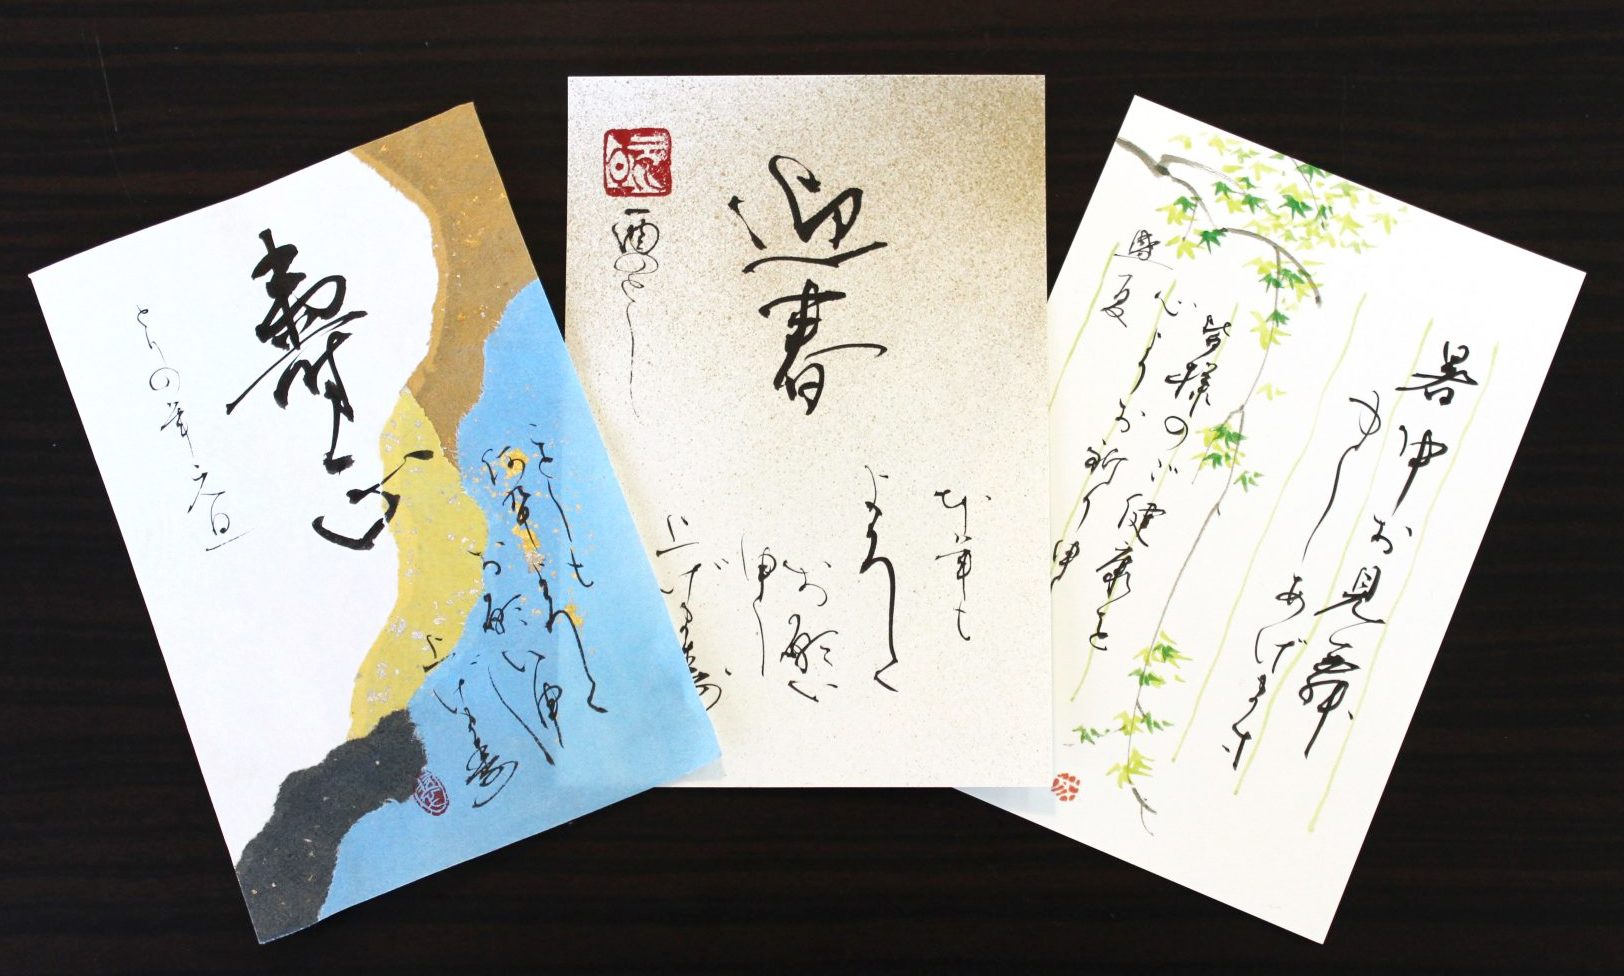 壽
ことしも
何卒よろしく
お願い申
上げます
とりの年元旦
迎春
本年も
よろしく
お願い
申し
上げます
酉のとし
暑中お見舞
申しあげます
皆様のご健康を
心よりお祈り申
盛夏